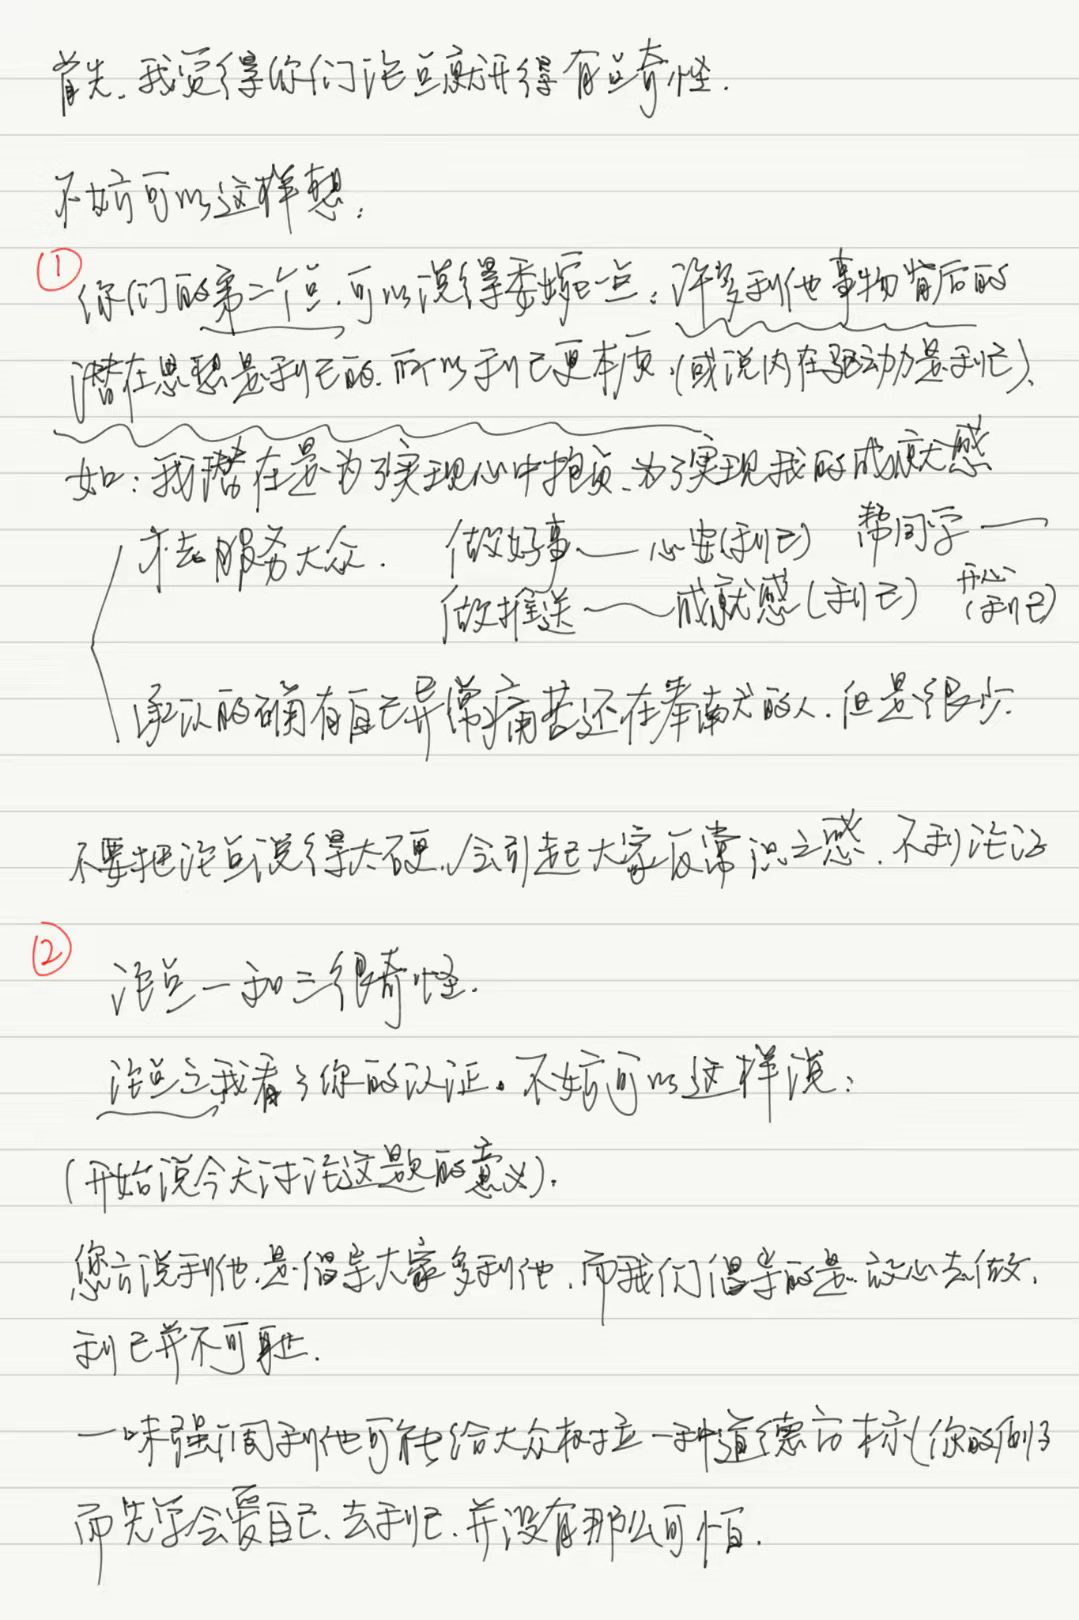 首先,我觉得你们论点就讲得有些奇怪.
不妨可以这样想:
① 你们的第二个点,可以说得委婉一点:许多利他事物背后的
潜在思想是利己的,所以利己更本质.(或说内在驱动力是利己)、
如:我潜在是为了实现心中抱负、为了实现我的成就感
才去服务大众. 做好事——心安(利己) 帮同学——
做推送——成就感(利己) 开心(利己)
承认的确有自己异常痛苦还在奉献的人.但是很少.
不要把论点说得太硬,会引起大家反常识之感.不利论证
② 论点一和三很奇怪.
论点三我看了你的认证。不妨可以这样说:
(开始说今天讨论这题的意义).
您方说利他,是倡导大家多利他,而我们倡导的是放心去做,
利己并不可耻.
一味强调利他可能给大众树立一种道德高标(你的例子
而先学会爱自己、去利己.并没有那么可怕.